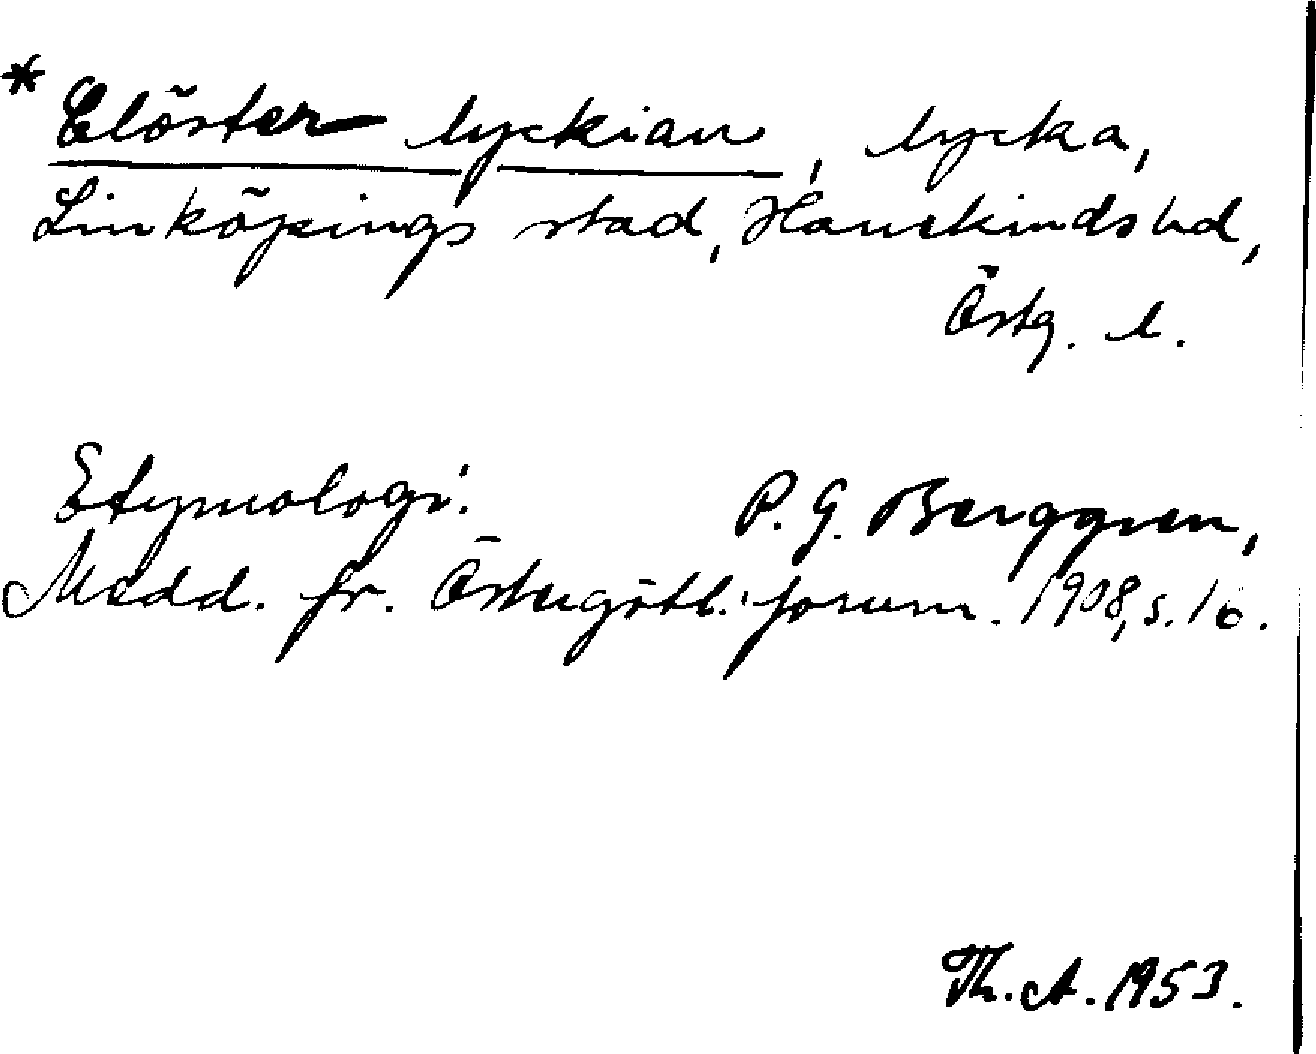 * Clöster lyckian, lycka,
Linköpings stad, Hanekinds hd,
Östg. l.
Etymologi. P. G. Berggren,
Medd. fr. Östergötl. fornm. 1908, s. 16.
Th. A. 1953.